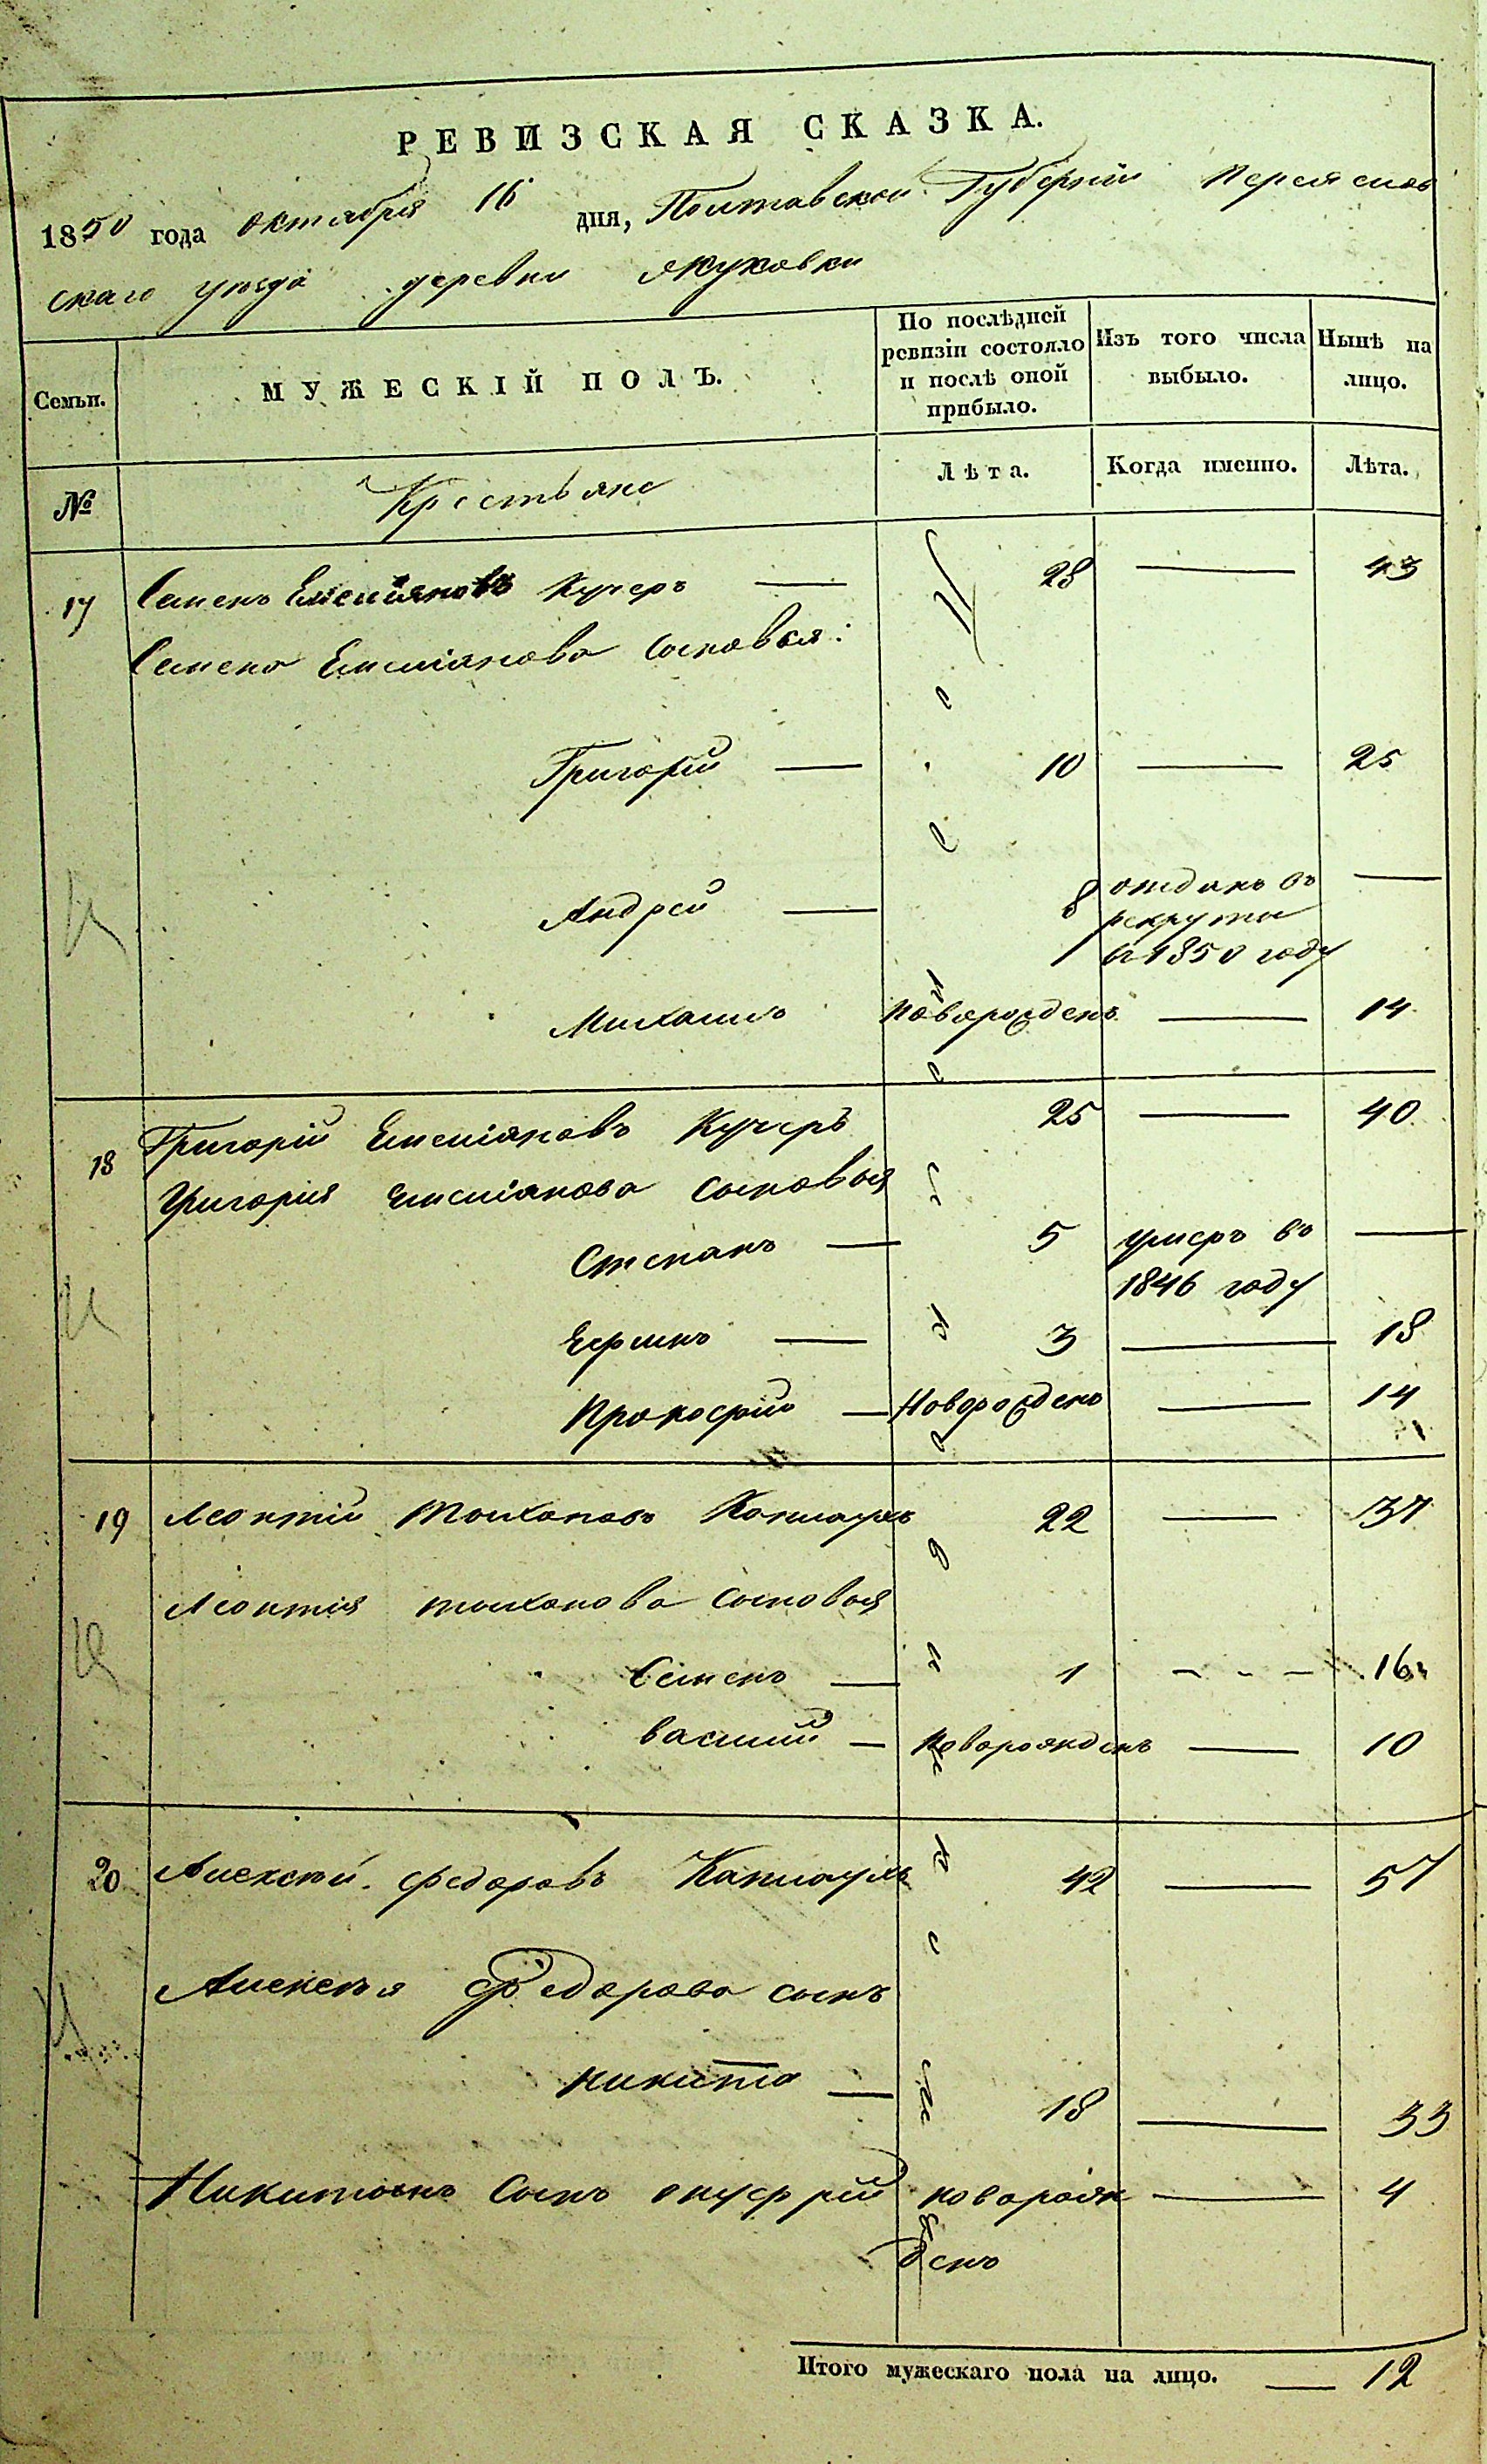 РЕВИЗСКАЯ СКАЗКА.
1850 года октября 16 дня, Полтавской Губерніи Переяслов
скаго уѣзда деревни Якуховки
Семьи. МУЖЕСКІЙ ПОЛЪ. По послѣдней ревизіи состояло и послѣ оной прибыло. Изъ того числа выбыло. Нынѣ на лицо.
№ Крестьяне Лѣта. Когда именно. Лѣта.
17 Семенъ Емельяновъ Кучеръ — 28 — 43
Семена Емеліянова Сыновья:
Григорій — 10 — 25
Андрей — 8 отданъ въ —
рекруты
въ 1850 году
Михаилъ новорожденъ — 14
18 Григорій Емеліяновъ Кучеръ 25 — 40
Григорія Емеліянова Сыновья
Степанъ — 5 умеръ въ —
1846 году
Ефимъ — 3 — 18
Прокофій — Новорожденъ — 14
19 Леонтій 22 — 37
Леонтія Сыновья
Семенъ — 1 - - - 16
Василій — Новорожденъ — 10
20 Алексѣй Федоровъ 42 — 57
Алексѣя Федорова сынъ
Никита — 18 — 33
Никитинъ Сынъ Онуфрій новорож — 4
денъ
Итого мужескаго пола на лицо. — 12